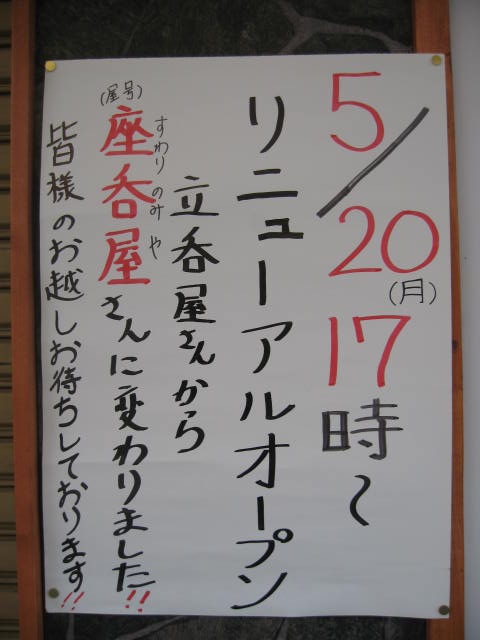 5/20(月)17時〜
リニューアルオープン
立呑屋さんから
(屋号)座呑屋さんに変わりました!!
すわりのみや
皆様のお越しお待ちしております!!